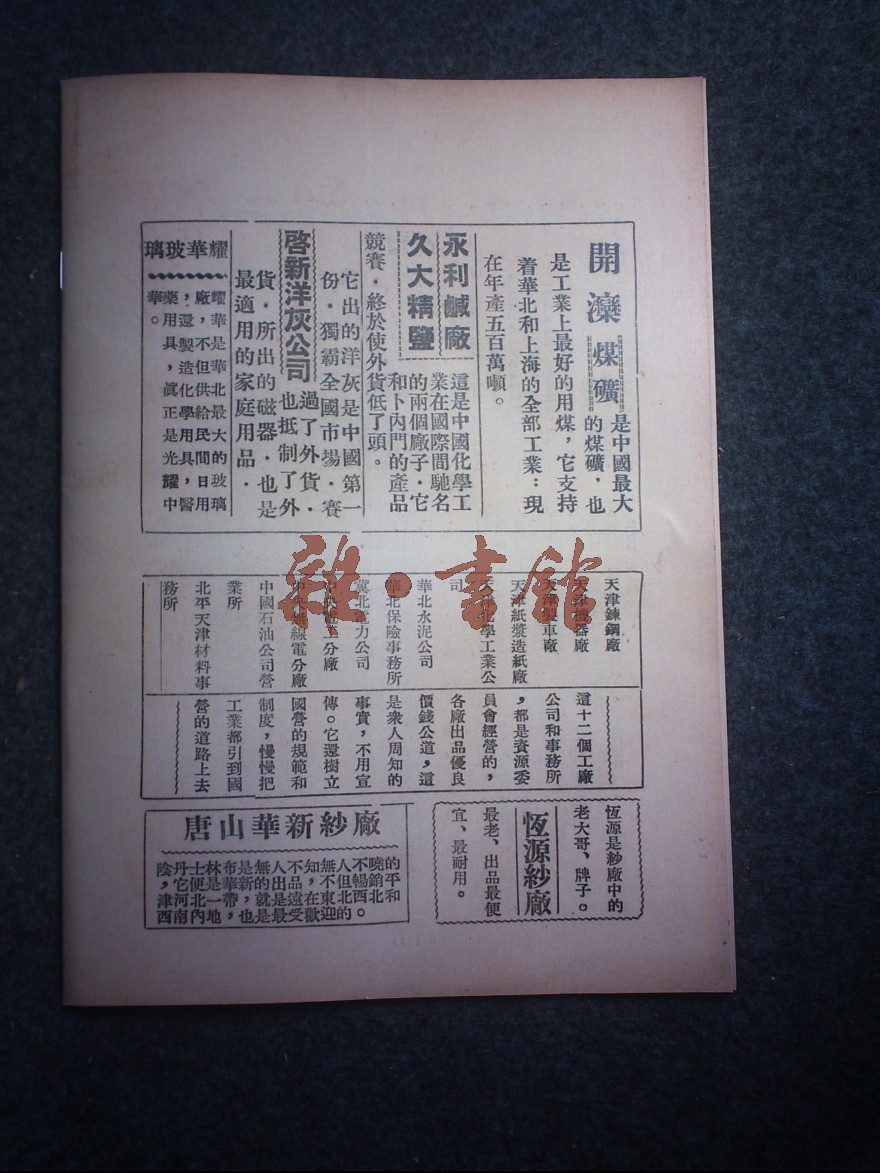 開灤煤礦是中國最大
的煤礦，也
是工業上最好的用煤，它支持
着華北和上海的全部工業：現
在年產五百萬噸。
永利鹹廠
久大精鹽
這是中國化學工
業在國際間馳名
的兩個廠子．它
和卜內門的產品
競賽．終於使外貨低了頭。
它出的洋灰是中國第一
份．獨霸全國市場．賽
啓新洋灰公司
過了外貨．
也抵制了外
貨．所出的磁器．也是
最適用的家庭用品．
耀華玻璃
耀華是華北最大的玻璃
廠，不但供給民間日用
，還製造化學用具，醫
藥用具，眞正是光耀中
華。
天津鍊鋼廠
天津機器廠
天津製車廠
天津紙漿造紙廠
天津化學工業公
司
華北水泥公司
華北保險事務所
冀北電力公司
中央電工分廠
中央無線電分廠
中國石油公司營
業所
北平天津材料事
務所
這十二個工廠
公司和事務所
，都是資源委
員會經營的，
各廠出品優良
價錢公道，這
是衆人周知的
事實，不用宣
傳。它還樹立
國營的規範和
制度，慢慢把
工業都引到國
營的道路上去
恆源是紗廠中的
老大哥、牌子。
恆源紗廠
最老、出品最便
宜、最耐用。
唐山華新紗廠
陰丹士林布是無人不知無人不曉的
，它便是華新的出品，不但暢銷平
津河北一帶，就是遠在東北西北和
西南內地，也是最受歡迎的。
雜·書館